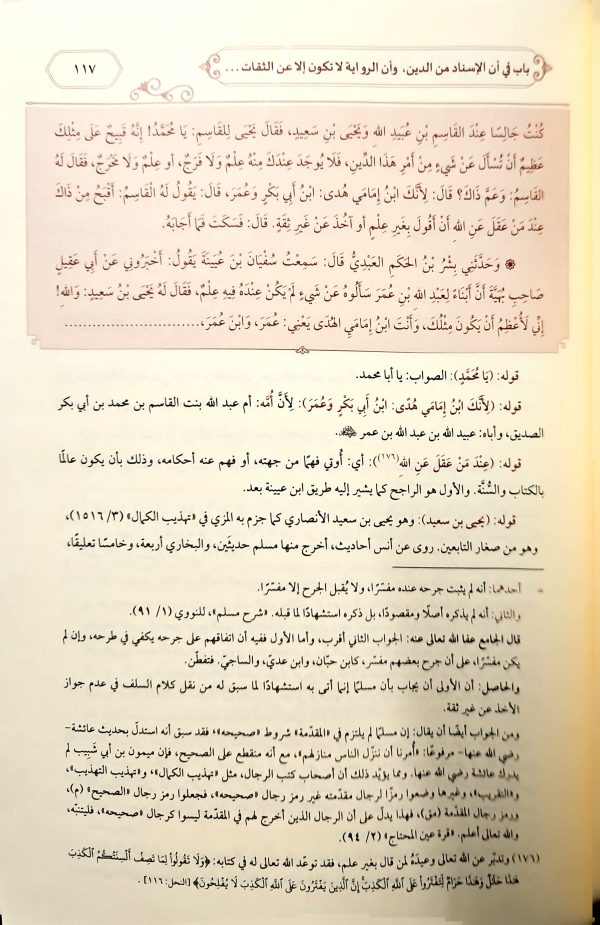 باب في أن الإسناد من الدين، وأن الرواية لا تكون إلا عن الثقات ...
١١٧
كُنْتُ جَالِسًا عِنْدَ القَاسِمِ بْنِ عُبَيدِ اللهِ وَيَحْيَى بْنِ سَعِيدٍ، فَقَالَ يَحْيَى لِلقَاسِمِ: يَا مُحَمَّدُ! إِنَّهُ قَبِيحٌ عَلَى مِثْلِكَ
عَظِيمٌ أَنْ تُسْأَلَ عَنْ شَيءٍ مِنْ أَمْرِ هَذَا الدِّينِ، فَلَا يُوجَدَ عِنْدَكَ مِنْهُ عِلْمٌ وَلَا فَرَجٌ، أَو عِلْمٌ وَلَا مَخْرَجٌ، فَقَالَ لَهُ
القَاسِمُ: وَعَمَّ ذَاكَ؟ قَالَ: لِأَنَّكَ ابْنُ إِمَامَي هُدى: ابْنُ أَبِي بَكْرٍ وَعُمَرَ، قَالَ: يَقُولُ لَهُ الْقَاسِمُ: أَقْبَحُ مِنْ ذَاكَ
عِنْدَ مَنْ عَقَلَ عَنِ اللهِ أَنْ أَقُولَ بِغَيرِ عِلْمٍ أَو آخُذَ عَنْ غَيرِ ثِقَةٍ. قَالَ: فَسَكَتَ فَمَا أَجَابَهُ.
۞ وَحَدَّثَنِي بِشْرُ بْنُ الحَكَمِ العَبْدِيُّ قَالَ: سَمِعْتُ سُفْيَانَ بْنَ عُيَينَةَ يَقُولُ: أَخْبَرُونِي عَنْ أَبِي عَقِيلٍ
صَاحِبِ بُهَيَّةَ أَنَّ أَبْنَاءً لِعَبْدِ اللهِ بْنِ عُمَرَ سَأَلُوهُ عَنْ شَيءٍ لَمْ يَكُنْ عِنْدَهُ فِيهِ عِلْمٌ، فَقَالَ لَهُ يَحْيَى بْنُ سَعِيدٍ: وَاللهِ!
إِنِّي لَأُعْظِمُ أَنْ يَكُونَ مِثْلُكَ، وَأَنْتَ ابْنُ إِمَامَيِ الهُدَى يَعْنِي: عُمَرَ، وَابْنَ عُمَرَ، ..............................
قوله: (يَا مُحَمَّدٍ): الصواب: يا أبا محمد.
قوله: (لِأَنَّكَ ابْنُ إِمَامَي هُدًى: ابْنُ أَبِي بَكْرٍ وَعُمَرَ): لِأَنَّ أُمَّه: أم عبد الله بنت القاسم بن محمد بن أبي بكر
الصديق، وأباه: عبيد الله بن عبد الله بن عمر ﷺ.
قوله: (عِنْدَ مَنْ عَقَلَ عَنِ اللهِ(١٧٦)): أي: أُوتي فهمًا من جهته، أو فهم عنه أحكامه، وذلك بأن يكون عالمًا
بالكتاب والسُّنَّة. والأول هو الراجح كما يشير إليه طريق ابن عيينة بعد.
قوله: (يحيى بن سعيد): وهو يحيى بن سعيد الأنصاري كما جزم به المزي في «تهذيب الكمال» (٣/ ١٥١٦)،
وهو من صغار التابعين. روى عن أنس أحاديث، أخرج منها مسلم حديثَين، والبخاري أربعة، وخامسًا تعليقًا،
= أحدهما: أنه لم يثبت جرحه عنده مفسّرًا، ولا يُقبل الجرح إلا مفسّرًا.
والثاني: أنه لم يذكره أصلًا ومقصودًا، بل ذكره استشهادًا لما قبله. «شرح مسلم»، للنووي (١/ ٩١).
قال الجامع عفا الله تعالى عنه: الجواب الثاني أقرب، وأما الأول ففيه أن اتفاقهم على جرحه يكفي في طرحه، وإن لم
يكن مفسّرًا، على أن جرح بعضهم مفسّر، كابن حبّان، وابن عديّ، والساجيّ. فتفطّن.
والحاصل: أن الأولى أن يجاب بأن مسلمًا إنما أتى به استشهادًا لما سبق له من نقل كلام السلف في عدم جواز
الأخذ عن غير ثقة.
ومن الجواب أيضًا أن يقال: إن مسلمًا لم يلتزم في «المقدّمة» شروط «صحيحه»، فقد سبق أنه استدلّ بحديث عائشة-
رضي الله عنها- مرفوعًا: «أُمرنا أن ننزّل الناس منازلهم»، مع أنه منقطع على الصحيح، فإن ميمون بن أبي شَبِيب لم
يدرك عائشة رضي الله عنها. ومما يؤيّد ذلك أن أصحاب كتب الرجال، مثل «تهذيب الكمال»، و«تهذيب التهذيب»،
و«التقريب»، وغيرها وضعوا رمزًا لرجال مقدّمته غير رمز رجال «صحيحه»، فجعلوا رمز رجال «الصحيح» (م)،
ورمز رجال المقدّمة (مق)، فهذا يدلّ على أن الرجال الذين أخرج لهم في المقدّمة ليسوا كرجال «صحيحه»، فليتنبّه،
والله تعالى أعلم. «قرة عين المحتاج» (٢/ ٩٤).
(١٧٦) وتدبّر عن الله تعالى وعيدَهُ لمن قال بغير علم، فقد توعّد الله تعالى له في كتابه: ﴿وَلَا تَقُولُوا لِمَا تَصِفُ أَلْسِنَتُكُمُ الْكَذِبَ
هَٰذَا حَلَٰلٌ وَهَٰذَا حَرَامٌ لِّتَفْتَرُوا عَلَى اللَّهِ الْكَذِبَ إِنَّ الَّذِينَ يَفْتَرُونَ عَلَى اللَّهِ الْكَذِبَ لَا يُفْلِحُونَ﴾ [النحل: ١١٦].